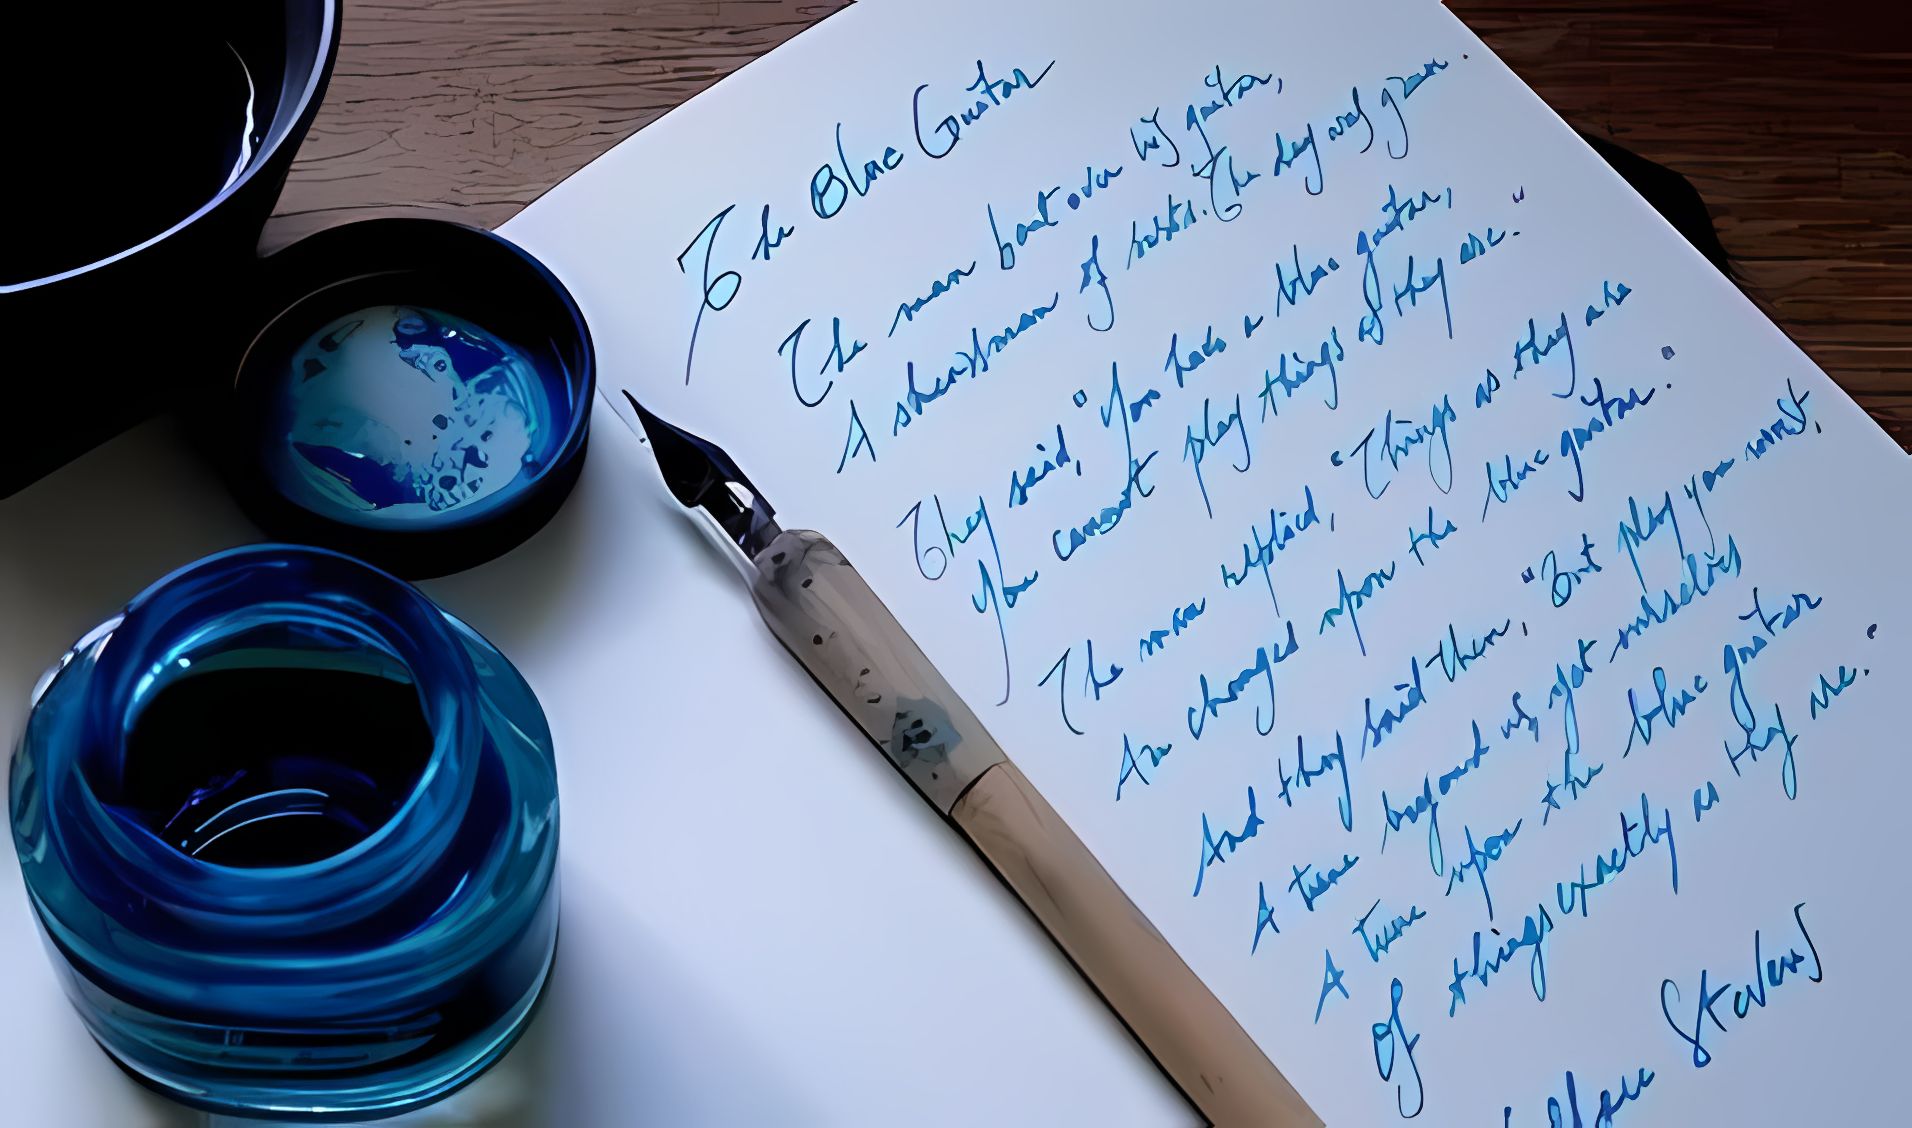 The Blue Guitar
The man bent over his guitar,
A shearsman of sorts. The day was green.
They said, "You have a blue guitar,
You cannot play things as they are."
The man replied, "Things as they are
Are changed upon the blue guitar."
And they said then, "But play you must,
A tune beyond us, yet ourselves
A tune upon the blue guitar
Of things exactly as they are."
Stevens